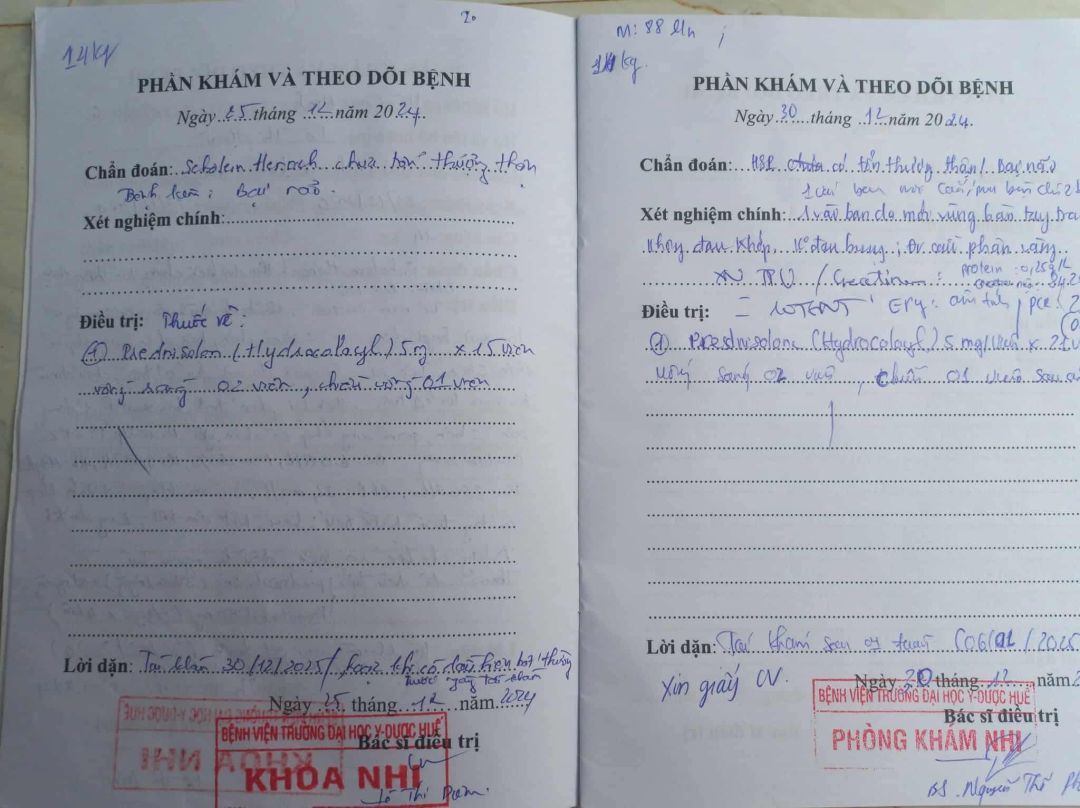 20
14kg
PHẦN KHÁM VÀ THEO DÕI BỆNH
Ngày 25 tháng 12 năm 2024.
Chẩn đoán: Scholein Henoch chưa tổn thương thận
Bệnh kèm: Bạch não.
Xét nghiệm chính:
Điều trị: Thuốc về:
(1) Prednisolon (Hydrocolacyl) 5mg x 15 viên
uống sáng 02 viên, chiều uống 01 viên
Lời dặn: Tái khám 30/12/2025/ hoặc khi có dấu hiện bất thường
Ngày 25 tháng 12 năm 2024
BỆNH VIỆN TRƯỜNG ĐẠI HỌC Y-DƯỢC HUẾ
Bác sĩ điều trị
KHOA NHI
M: 88 l/p ;
14kg.
PHẦN KHÁM VÀ THEO DÕI BỆNH
Ngày 30 tháng 12 năm 2024.
Chẩn đoán: HSP có tổn thương thận/
Xét nghiệm chính: 1 vài ban da mới vùng bàn tay
không đau khớp, K° đau bụng, phân vàng
XN TPU / Creatinin : protein : 0,25g/L
Điều trị:
(1) Prednisolone (Hydrocolacyl) 5 mg/viên x 21
uống sáng 02 viên, chiều 01 viên sau
Lời dặn: Tái khám sau 01 tuần (06/01/2025
Xin giấy CV.
Ngày 30 tháng 12 năm 2
BỆNH VIỆN TRƯỜNG ĐẠI HỌC Y-DƯỢC HUẾ
Bác sĩ điều trị
PHÒNG KHÁM NHI
BS. Nguyễn Thị